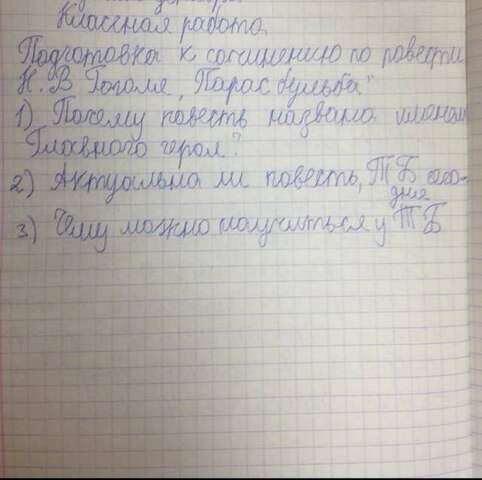 Классная работа.
Подготовка к сочинению по повести
Н. В Гоголя „Тарас бульба"
1) Почему повесть названа именем
Главного героя?
2) Актуальна ли повесть „ТБ сего-
дня
3) Чему можно научиться у ТБ